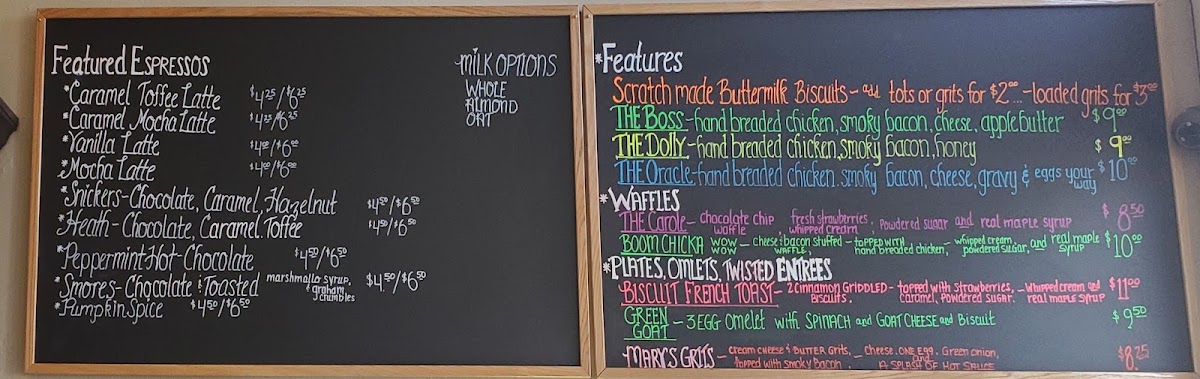 Featured Espressos
*Caramel Toffee Latte $4.25/$6.25
*Caramel Mocha Latte $4.25/6.25
*Vanilla Latte $4.00/$6.00
*Mocha Latte $4.00/$6.00
*Snickers-Chocolate, Caramel, Hazelnut $4.50/$6.50
*Heath-Chocolate, Caramel. Toffee $4.50/$6.50
*Peppermint-Hot-Chocolate $4.50/$6.50
*Smores-Chocolate & Toasted marshmallo syrup, & graham crumbles $4.50/$6.50
*Pumpkin Spice $4.50/$6.50
MILK OPTIONS
WHOLE
ALMOND
OAT
*Features
Scratch made Buttermilk Biscuits - add tots or grits for $2.00... -loaded grits for $3.00
THE BOSS-hand breaded chicken, smoky bacon, cheese, apple butter $9.00
THE DOLLY-hand breaded chicken, smoky bacon, honey $9.00
THE Oracle-hand breaded chicken. smoky bacon, cheese, gravy & eggs your way $10.00
*WAFFLES
THE CAROLE- chocolate chip waffle fresh strawberries, whipped cream, powdered sugar and real maple syrup $8.50
BOOM CHICKA WOW WOW - cheese & bacon stuffed WAFFLE, - TOPPED WITH hand breaded chicken, - whipped cream, powdered sugar, and real maple syrup $10.00
*PLATES, OMLETS, TWISTED ENTREES
BISCUIT FRENCH TOAST- 2 Cinnamon GRIDDLED Biscuits, - topped with strawberries, caramel, powdered sugar. - whipped cream and real maple syrup $11.00
GREEN GOAT - 3 EGG Omelet with SPINACH and GOAT CHEESE and Biscuit $9.50
MARY'S GRITS - cream cheese & BUTTER Grits, topped with smoky Bacon - cheese. ONE EGG. Green onion, and A SPLASH OF HOT SAUCE $8.25